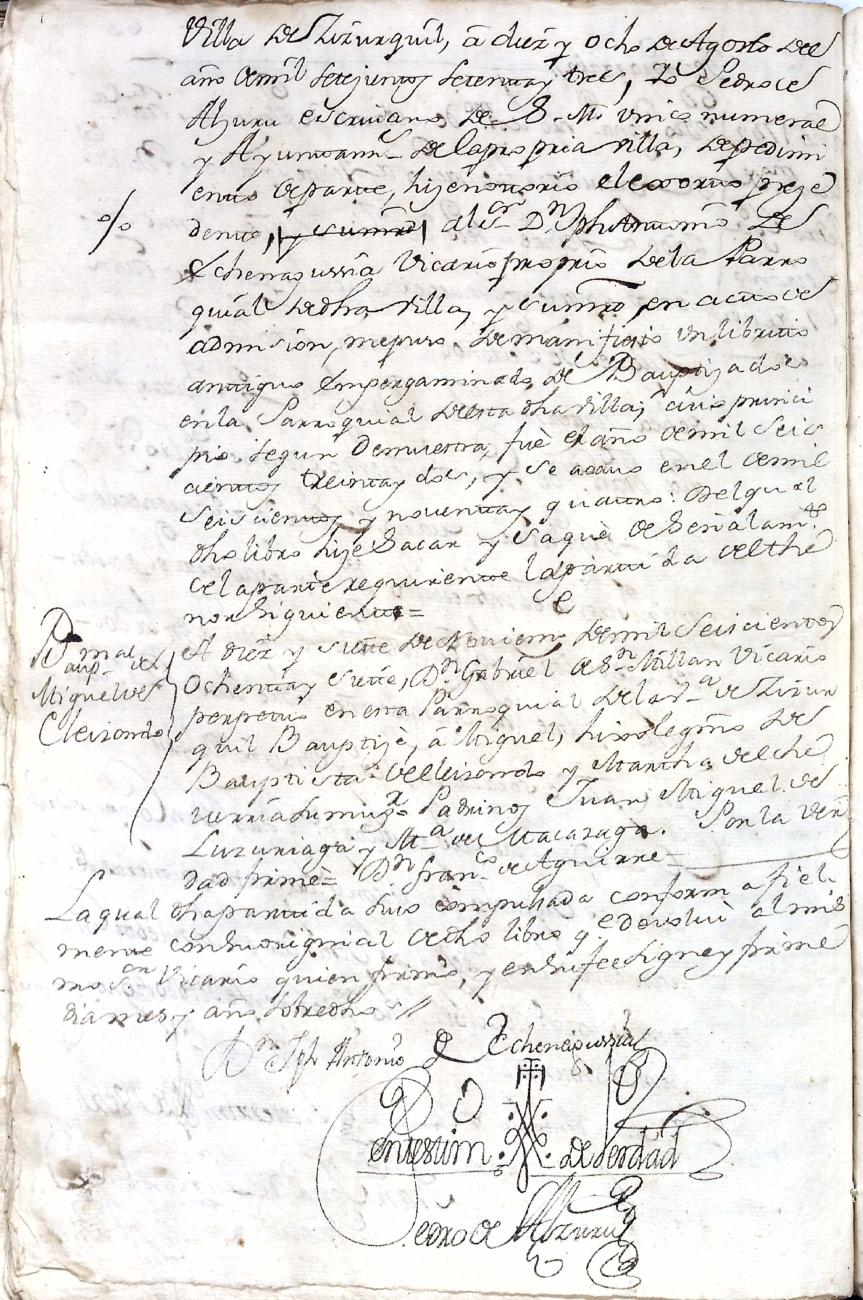 Villa de Zizurquil, â diez y ocho de Agosto del
año de mil setezientos setenta y tres, Yo Pedro de
Alzuru escrivano de S. M. unico numeral
y Ayuntam.to de la propria villa, de pedimi
ento de parte, hize notorio el exorto preze
%
dente, y sumro al S.or D.n Jph Antonio de
Echenagussia Vicario proprio de la Parro
quial de dha villa, y sumrd en acto de
admision, me puso de manifiesto un librito
antiguo empergaminado de Bauptizados
en la Parroquial de esta dha villa, cuio princi
pio segun demuestra, fuè el año de mil seis
cientos treinta y dos, y se acavo en el de mil
seiscientos y noventa y quattro: Del qual
dho libro hize sacar y saquè de señalam.to
de la parte requirente la partida del the
nor siguiente=
Bmal
Baup. de
Miguel de
Eleizondo
A diez y siette de Noviem. de mil seiscientos
ochenta y siette, D.n Gabriel de S.n Millan Vicario
perpetuo en esta Parroquial de la v.a de Zizur
quil Bauptizè, â Miguel, hixo legmo de
Bauptista de Eleizondo y Martha de Eche
verria su muger Padrinos Juan Miguel de
Luzuriaga y M.a de Atacaraga. Por la ver
dad firmè= D.n Fran.co de Aguirre=
La qual dha partida sivo compulsada conform a fiel
mente con su original de dho libro q.e devolvi al mis
mo S.or Vicario quien firmò, y en su fee signe y firmè
dia mes y año sobredho
D.n Jph Antonio de Echenagussia
en testim.o de verdad
Pedro de Alzuru